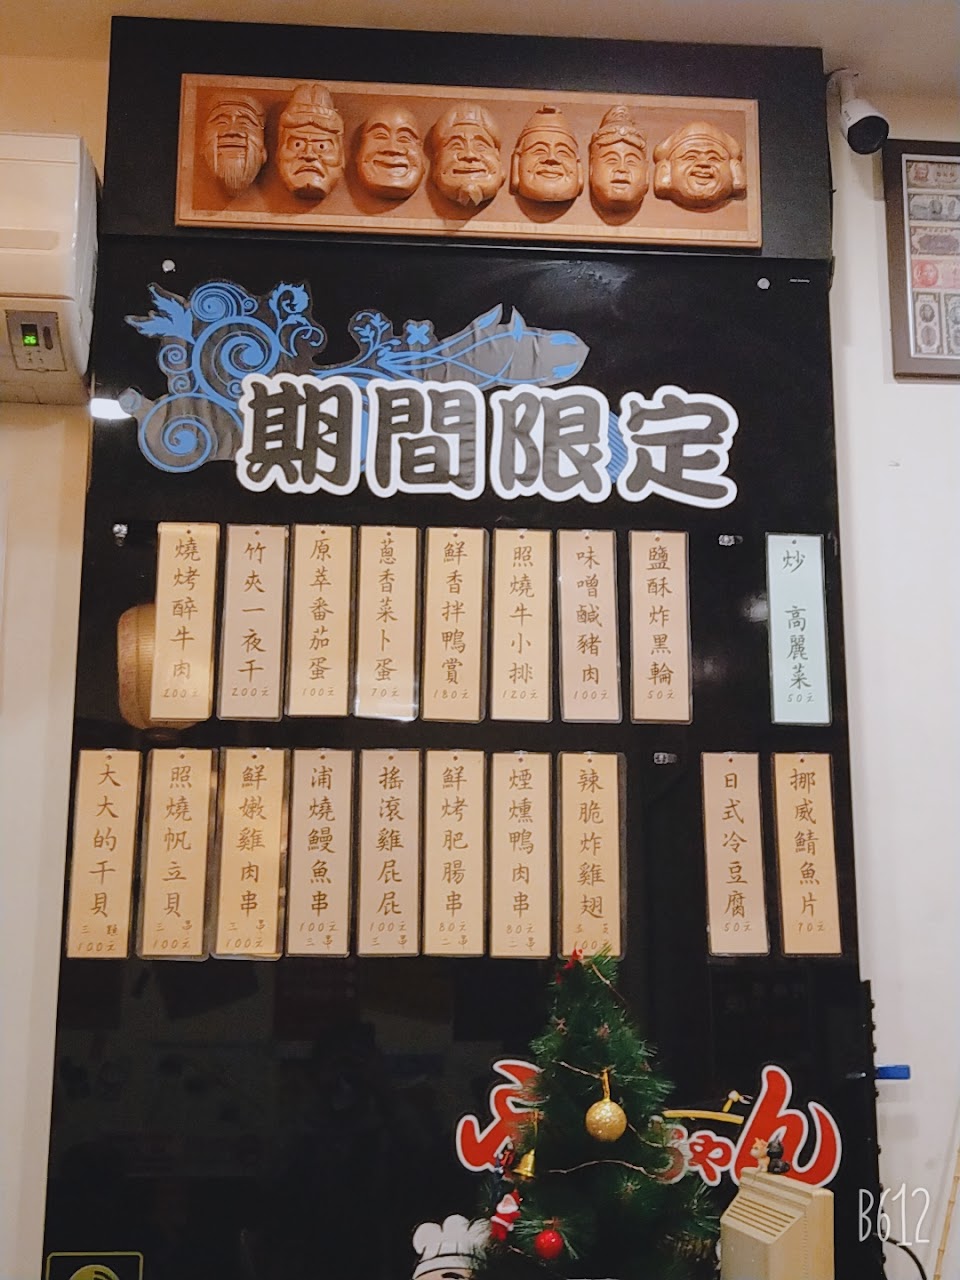 期間限定
燒烤醉牛肉 200元
竹夾一夜干 200元
原萃番茄蛋 100元
蔥香菜卜蛋 70元
鮮香拌鴨賞 180元
照燒牛小排 120元
味噌鹹豬肉 100元
鹽酥炸黑輪 50元
炒 高麗菜 50元
大大的干貝 三顆 100元
照燒帆立貝 三串 100元
鮮嫩雞肉串 三串 100元
浦燒鰻魚串 100元 三串
搖滾雞屁屁 100元 三串
鮮烤肥腸串 80元 二串
煙燻鴨肉串 80元 二串
辣脆炸雞翅 100元
日式冷豆腐 50元
挪威鯖魚片 70元
ちゃん
26
B612